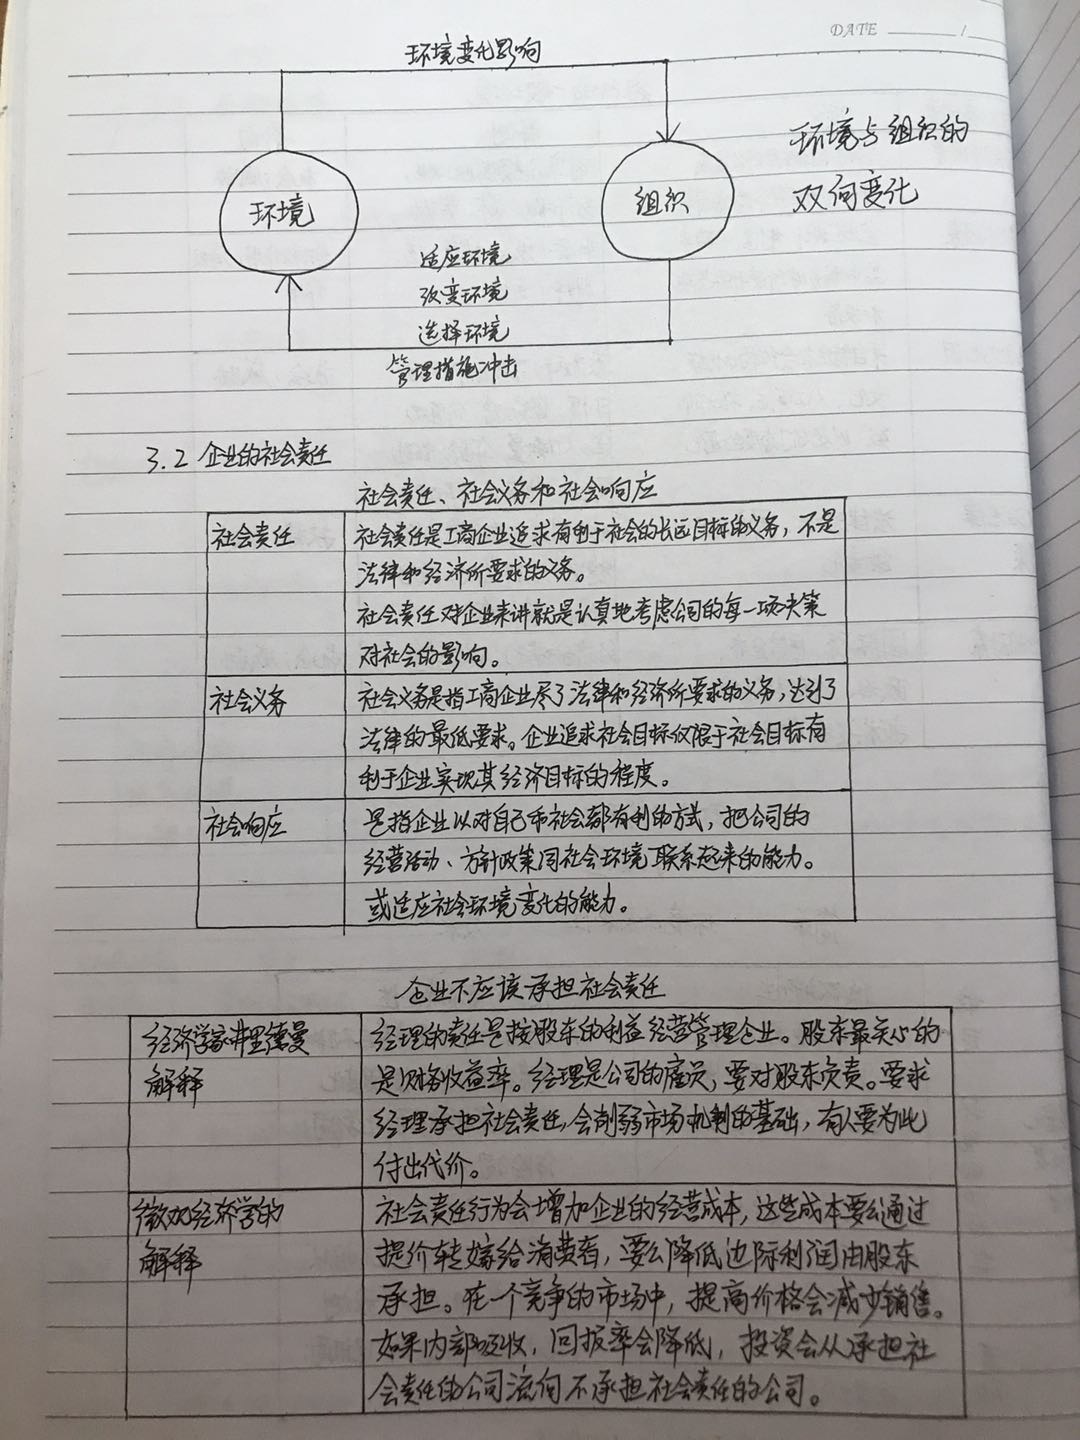 DATE
环境变化影响
环境与组织的
双向变化
环境
组织
适应环境
改变环境
选择环境
管理措施冲击
3.2 企业的社会责任
社会责任、社会义务和社会响应
社会责任
社会责任是工商企业追求有利于社会的长远目标的义务，不是
法律和经济所要求的义务。
社会责任对企业来讲就是认真地考虑公司的每一项决策
对社会的影响。
社会义务
社会义务是指工商企业尽了法律和经济所要求的义务，达到了
法律的最低要求。企业追求社会目标仅限于社会目标有
利于企业实现其经济目标的程度。
社会响应
是指企业以对自己和社会都有利的方式，把公司的
经营活动、方针政策同社会环境联系起来的能力。
或适应社会环境变化的能力。
企业不应该承担社会责任
经济学家弗里德曼
解释
经理的责任是按股东的利益经营管理企业。股东最关心的
是财务收益率。经理是公司的雇员，要对股东负责。要求
经理承担社会责任，会削弱市场机制的基础，有人要为此
付出代价。
微观经济学的
解释
社会责任行为会增加企业的经营成本，这些成本要么通过
提价转嫁给消费者，要么降低边际利润由股东
承担。在一个竞争的市场中，提高价格会减少销售。
如果内部吸收，回报率会降低，投资会从承担社
会责任的公司流向不承担社会责任的公司。